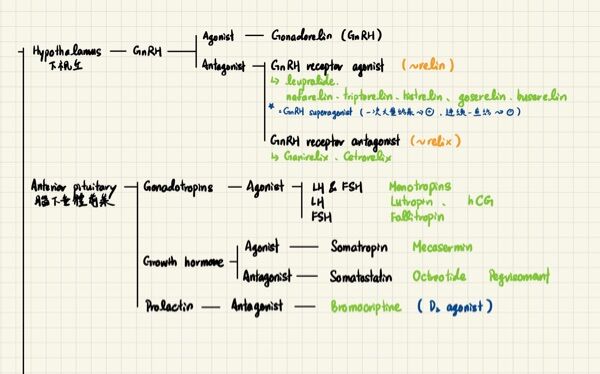 Agonist — Gonadorelin (GnRH)
Hypothalamus — GnRH
下視丘
Antagonist — GnRH receptor agonist (~relin)
↳ leuprolide.
nafarelin . triptorelin . histrelin 、 goserelin . buserelin
* • GnRH superagonist (一次大量給藥 ~> ⊕ . 連續一直給 ~> ⊖ )
GnRH receptor antagonist (~relix)
↳ Ganirelix . Cetrorelix
Anterior pituitary — Gonadotropins — Agonist — LH & FSH Menotropins
腦下垂體前葉
LH Lutropin 、 hCG
FSH Follitropin
Agonist — Somatropin Mecasermin
Growth hormone
Antagonist — Somatostatin Octreotide Pegvisomant
Prolactin — Antagonist — Bromocriptine (D₂ agonist)